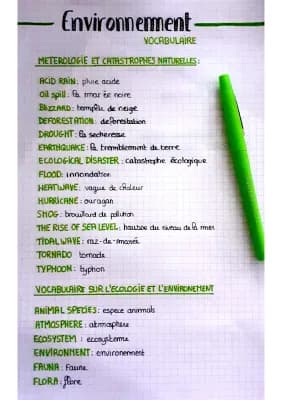 Environnemment
VOCABULAIRE
METEROLOGIE ET CATASTROPHES NATURELLES :
ACID RAIN : pluie acide
Oil spill : la marée noire
BLIZZARD : tempête de neige
DEFORESTATION : deforestation
DROUGHT : la secheresse
EARTHQUAKE : la tremblement de terre
ECOLOGICAL DISASTER : catastrophe écologique
FLOOD : innondation
HEATWAVE : vague de chaleur
HURRICANE : ouragan
SMOG : brouillard de pollution
THE RISE OF SEA LEVEL : hausse du niveau de la mer
TIDAL WAVE : raz-de-marée
TORNADO tornade
TYPHOON : typhon
VOCABULAIRE SUR L'ECOLOGIE ET L'ENVIRONEMENT
ANIMAL SPECIES : espece animals
ATMOSPHERE : atmosphere
ECOSYSTEM : ecosysteme
ENVIRONMENT : environement
FAUNA : Faune
FLORA : flore